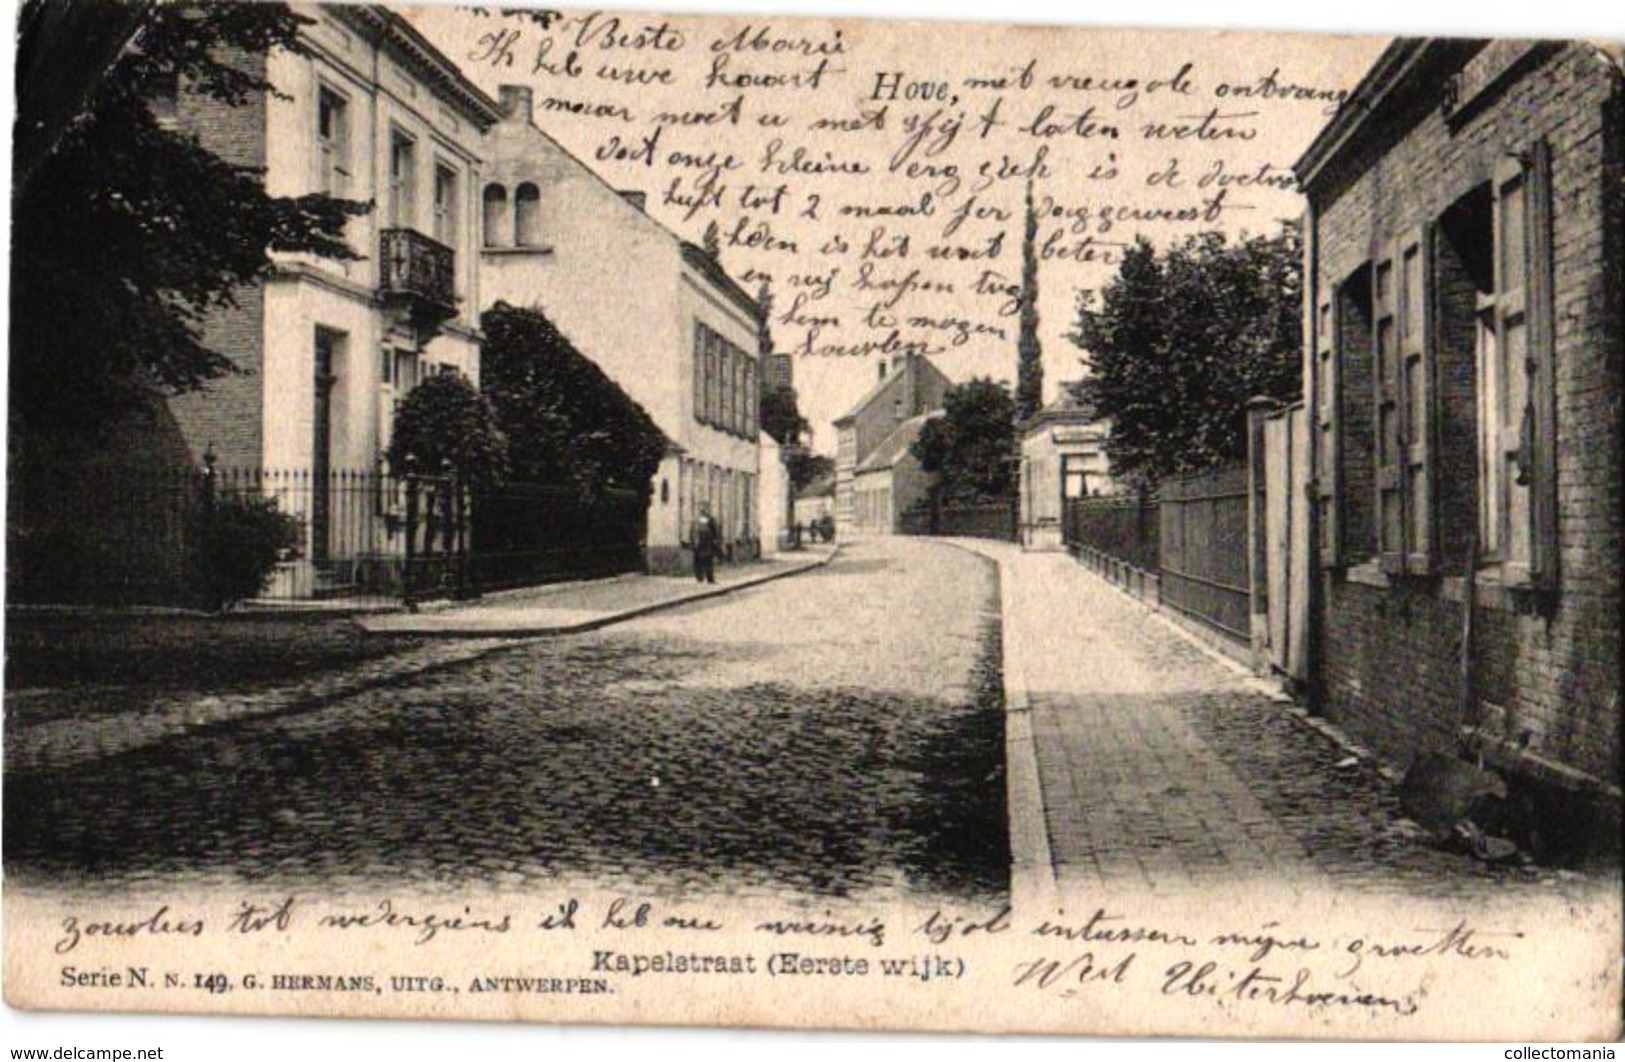 Beste Marie
Ik heb uwe kaart Hove, met vreugde ontvangen
maar moet u met spijt laten weten
dat onze kleine erg ziek is de doctor
heeft tot 2 maal per dag geweest
heden is het wat beter
en wij hopen tog
hem te mogen
houden
tot wederziens ik heb nu weinig tijd intussen mijne groetten
Wed Uiterhoeven
Kapelstraat (Eerste wijk)
Serie N. N. 149, G. HERMANS, UITG., ANTWERPEN.
www.delcampe.net
collectomania